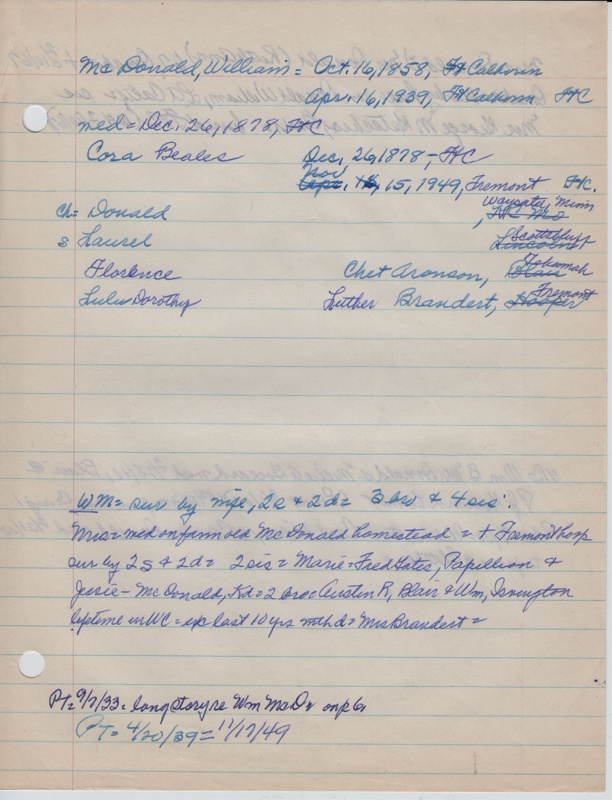 McDonald, William = Oct. 16, 1858, Ft Calhoun
Apr. 16, 1939, Ft Calhoun FtC
med = Dec. 26, 1878, FtC
Cora Beales Dec. 26, 1878 - FtC
Nov
Apr. 16, 15, 1949, Fremont FtC.
Wayzata, Minn
Ch = Donald
Scottsbluff
s Laurel Lincoln
Tekamah
Florence Chet Aronson, Blair
Fremont
Lulu Dorothy Luther Brandert, Hooper
WM = sur by mge, 2s & 2d = 3 bro & 4 sis.
Mrs = med on farm old McDonald homestead = + Fremont hosp
sur by 2s & 2d = 2 sis = Marie = Fred Gates, Papillion &
Jessie - McDonald, = 2 bro = Austin R, Blair & Wm, Irvington
lifetime in WC = ex last 10 yrs mth d = Mrs Brandert =
PT = 9/7/33 = long story re Wm McD on p6
PT = 4/20/39 = 11/17/49